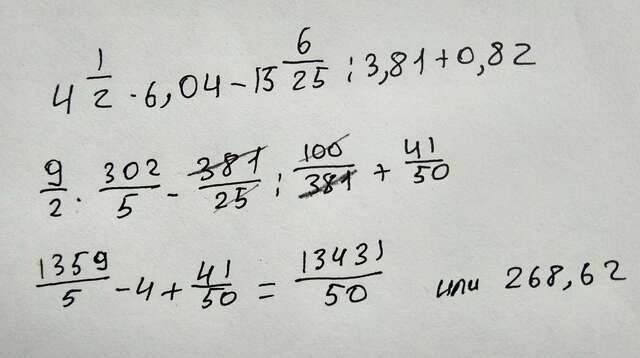 4 1/2 · 6,04 – 15 6/25 : 3,81 + 0,82
9/2 · 302/5 – 381/25 : 100/381 + 41/50
1359/5 – 4 + 41/50 = 13431/50 или 268,62